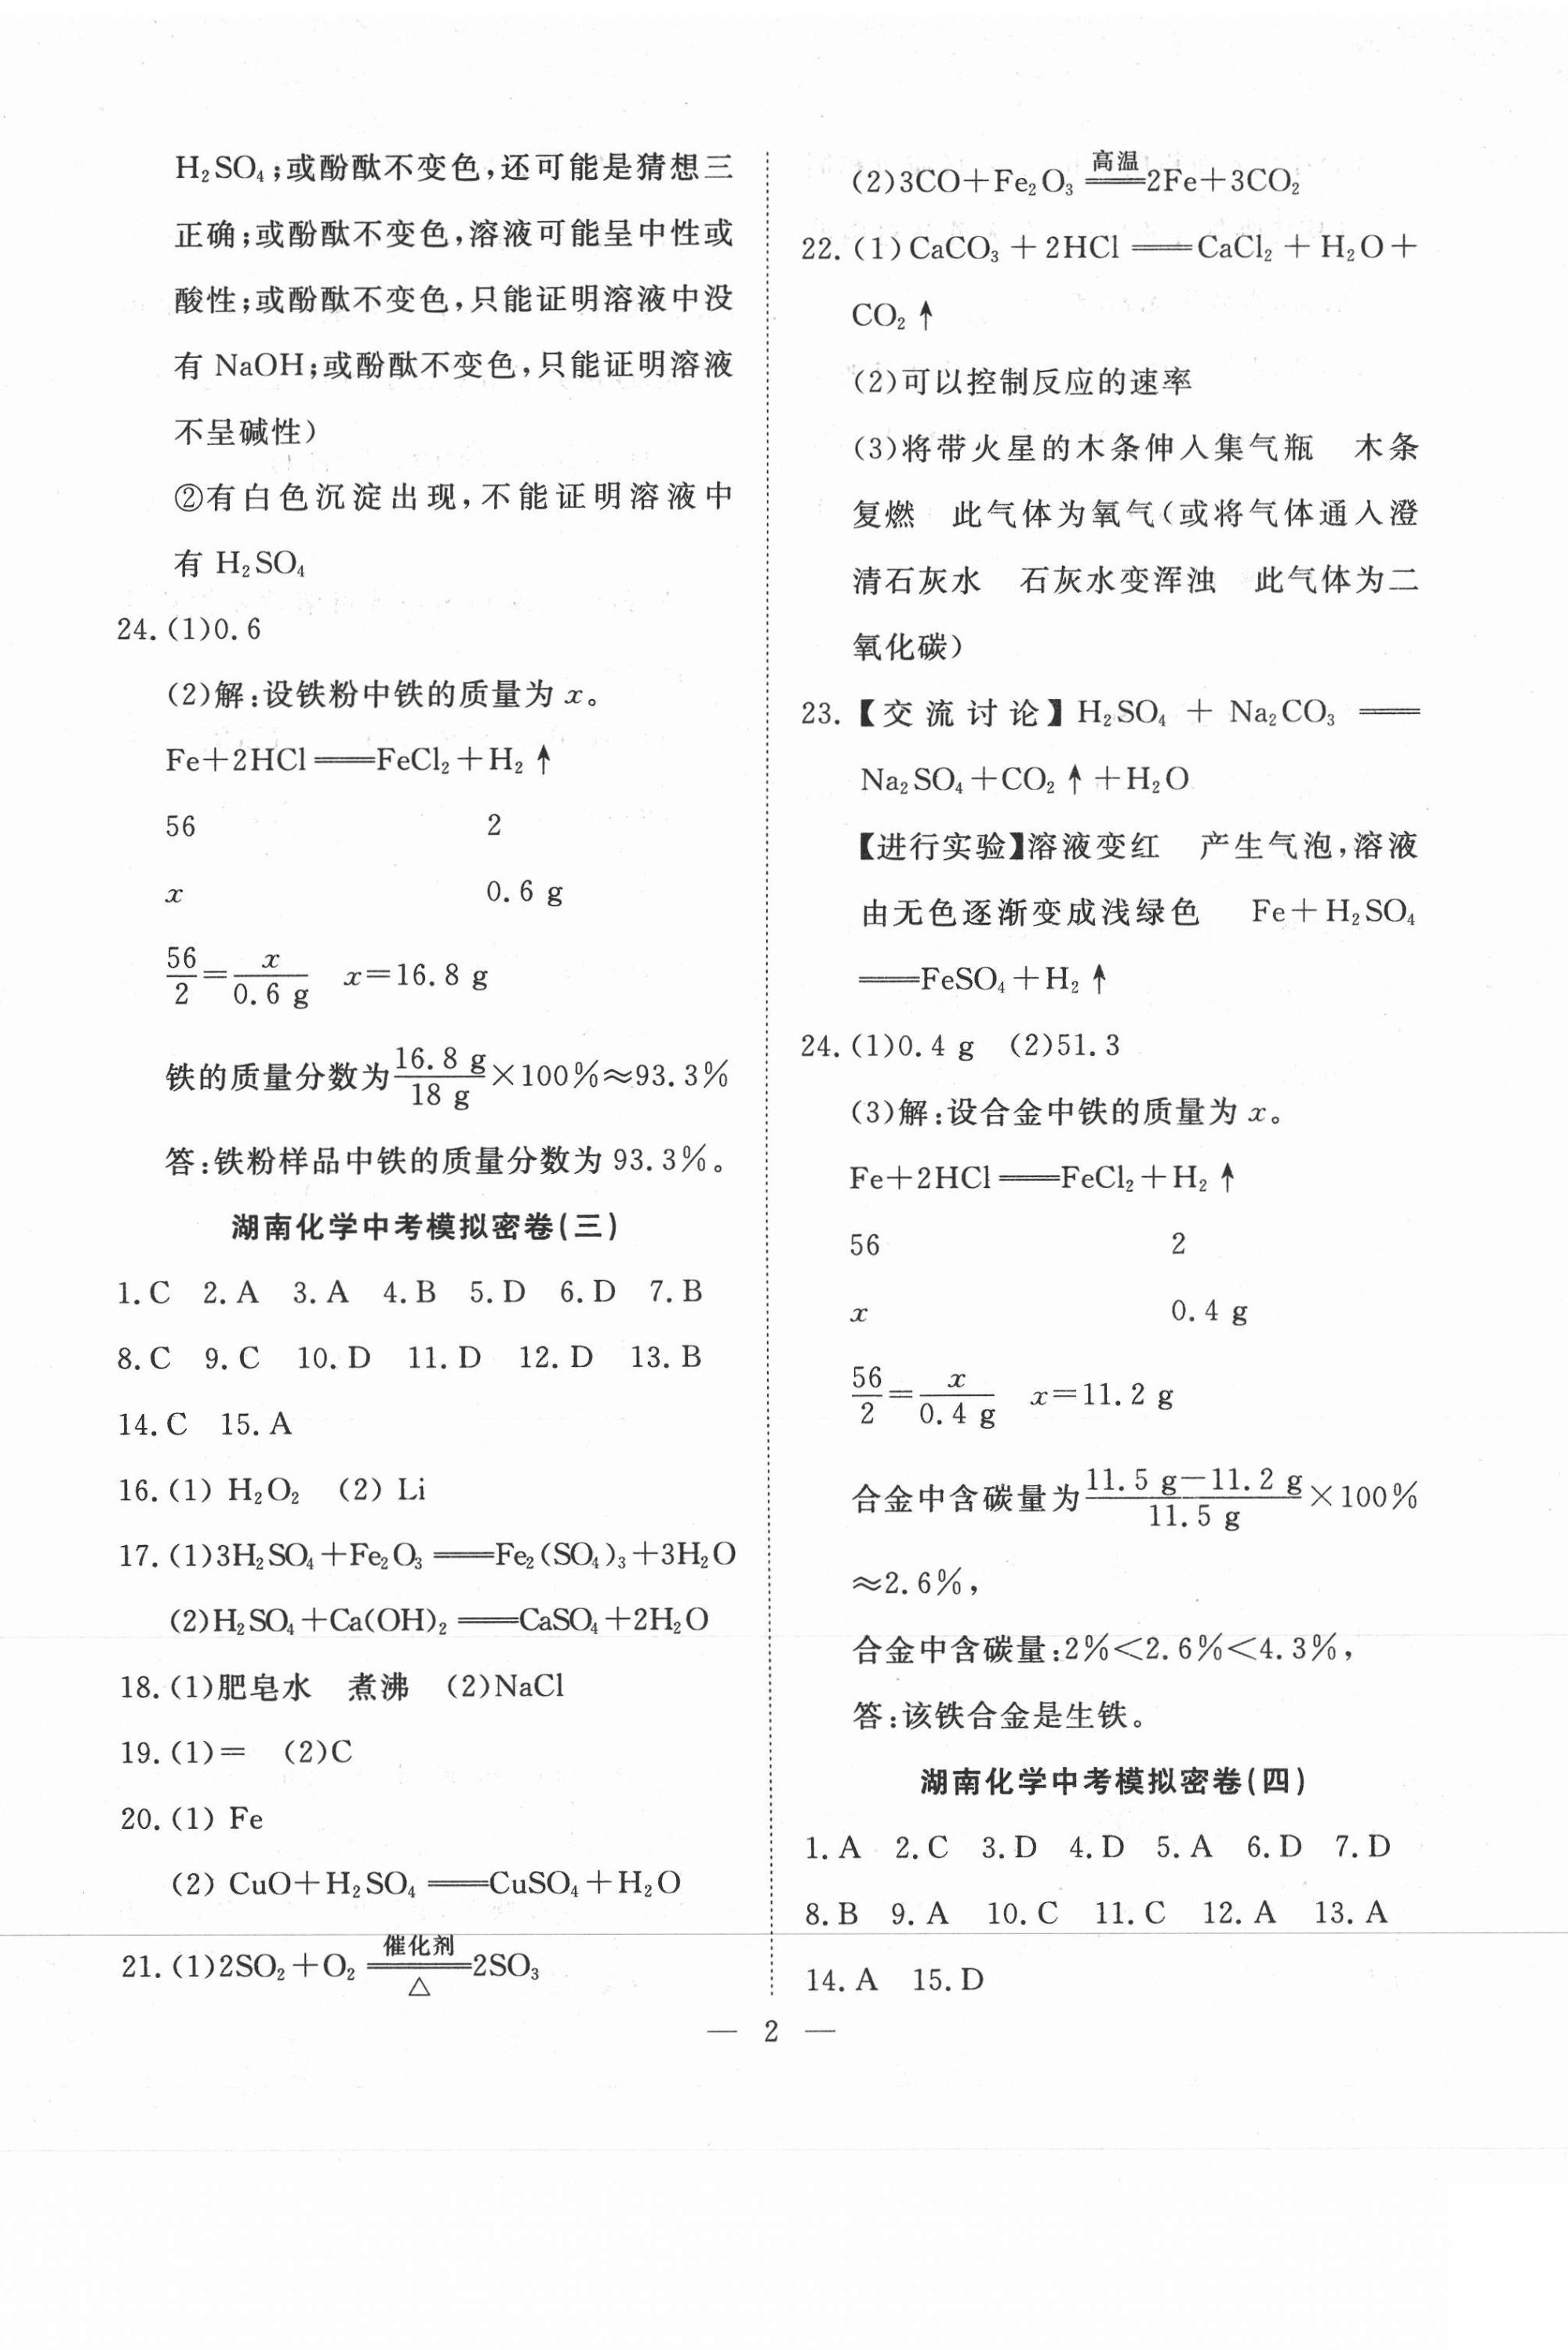 H₂SO₄;或酚酞不变色,还可能是猜想三
正确;或酚酞不变色,溶液可能呈中性或
酸性;或酚酞不变色,只能证明溶液中没
有 NaOH;或酚酞不变色,只能证明溶液
不呈碱性)
②有白色沉淀出现,不能证明溶液中
有 H₂SO₄
24.(1)0.6
(2)解:设铁粉中铁的质量为 x。
Fe+2HCl══FeCl₂+H₂↑
56 2
x 0.6 g
56/2=x/0.6 g x=16.8 g
铁的质量分数为16.8 g/18 g×100%≈93.3%
答:铁粉样品中铁的质量分数为 93.3%。
湖南化学中考模拟密卷(三)
1.C 2.A 3.A 4.B 5.D 6.D 7.B
8.C 9.C 10.D 11.D 12.D 13.B
14.C 15.A
16.(1) H₂O₂ (2) Li
17.(1)3H₂SO₄+Fe₂O₃══Fe₂(SO₄)₃+3H₂O
(2)H₂SO₄+Ca(OH)₂══CaSO₄+2H₂O
18.(1)肥皂水 煮沸 (2)NaCl
19.(1)= (2)C
20.(1) Fe
(2) CuO+H₂SO₄══CuSO₄+H₂O
21.(1)2SO₂+O₂ 催化剂══△ 2SO₃
(2)3CO+Fe₂O₃ 高温══ 2Fe+3CO₂
22.(1)CaCO₃+2HCl══CaCl₂+H₂O+
CO₂↑
(2)可以控制反应的速率
(3)将带火星的木条伸入集气瓶 木条
复燃 此气体为氧气(或将气体通入澄
清石灰水 石灰水变浑浊 此气体为二
氧化碳)
23.【交流讨论】H₂SO₄+Na₂CO₃══
Na₂SO₄+CO₂↑+H₂O
【进行实验】溶液变红 产生气泡,溶液
由无色逐渐变成浅绿色 Fe+H₂SO₄
══FeSO₄+H₂↑
24.(1)0.4 g (2)51.3
(3)解:设合金中铁的质量为 x。
Fe+2HCl══FeCl₂+H₂↑
56 2
x 0.4 g
56/2=x/0.4 g x=11.2 g
合金中含碳量为11.5 g-11.2 g/11.5 g×100%
≈2.6%,
合金中含碳量:2%<2.6%<4.3%,
答:该铁合金是生铁。
湖南化学中考模拟密卷(四)
1.A 2.C 3.D 4.D 5.A 6.D 7.D
8.B 9.A 10.C 11.C 12.A 13.A
14.A 15.D
— 2 —